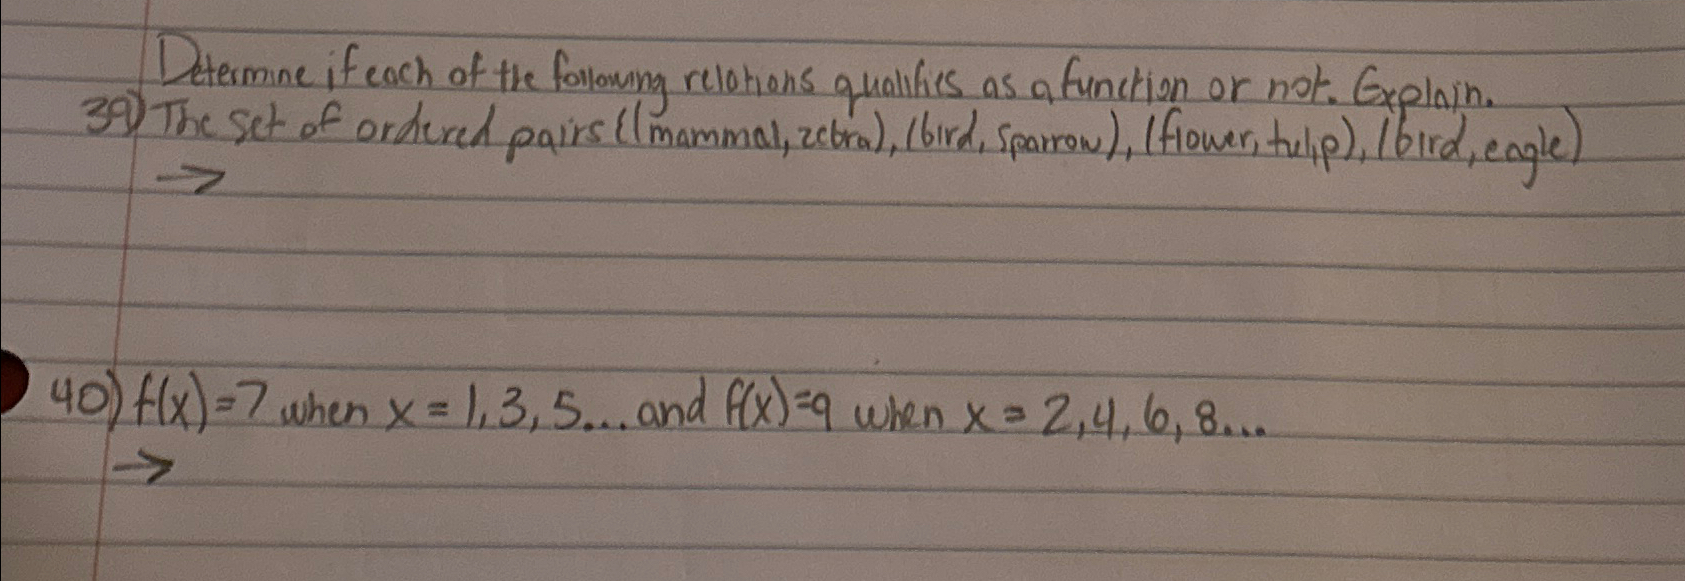 Determine if each of the following relations qualifies as a function or not. Explain.
39) The set of ordered pairs ((mammal, zebra), (bird, sparrow), (flower, tulip), (bird, eagle)
→
40) f(x)=7 when x = 1, 3, 5... and f(x)=9 when x = 2, 4, 6, 8...
→